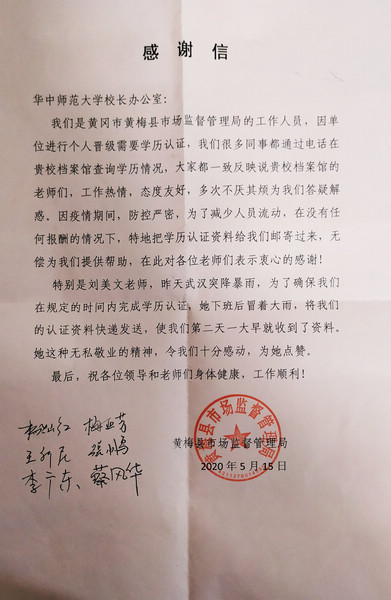 感谢信
华中师范大学校长办公室：
我们是黄冈市黄梅县市场监督管理局的工作人员，因单
位进行个人晋级需要学历认证，我们很多同事都通过电话在
贵校档案馆查询学历情况，大家都一致反映说贵校档案馆的
老师们，工作热情，态度友好，多次不厌其烦为我们答疑解
惑。因疫情期间，防控严密，为了减少人员流动，在没有任
何报酬的情况下，特地把学历认证资料给我们邮寄过来，无
偿为我们提供帮助，在此对各位老师们表示衷心的感谢！
特别是刘美文老师，昨天武汉突降暴雨，为了确保我们
在规定的时间内完成学历认证，她下班后冒着大雨，将我们
的认证资料快递发送，使我们第二天一大早就收到了资料。
她这种无私敬业的精神，令我们十分感动，为她点赞。
最后，祝各位领导和老师们身体健康，工作顺利！
梅亚芳
李广东、蔡风华
黄梅县市场监督管理局
2020年5月15日
黄梅县市场监督管理局